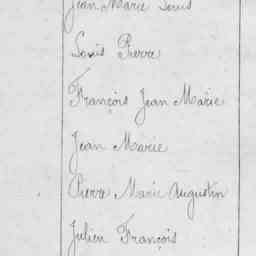 Jean Marie Louis
Louis Pierre
François Jean Marie
Jean Marie
Pierre Marie Augustin
Julien François